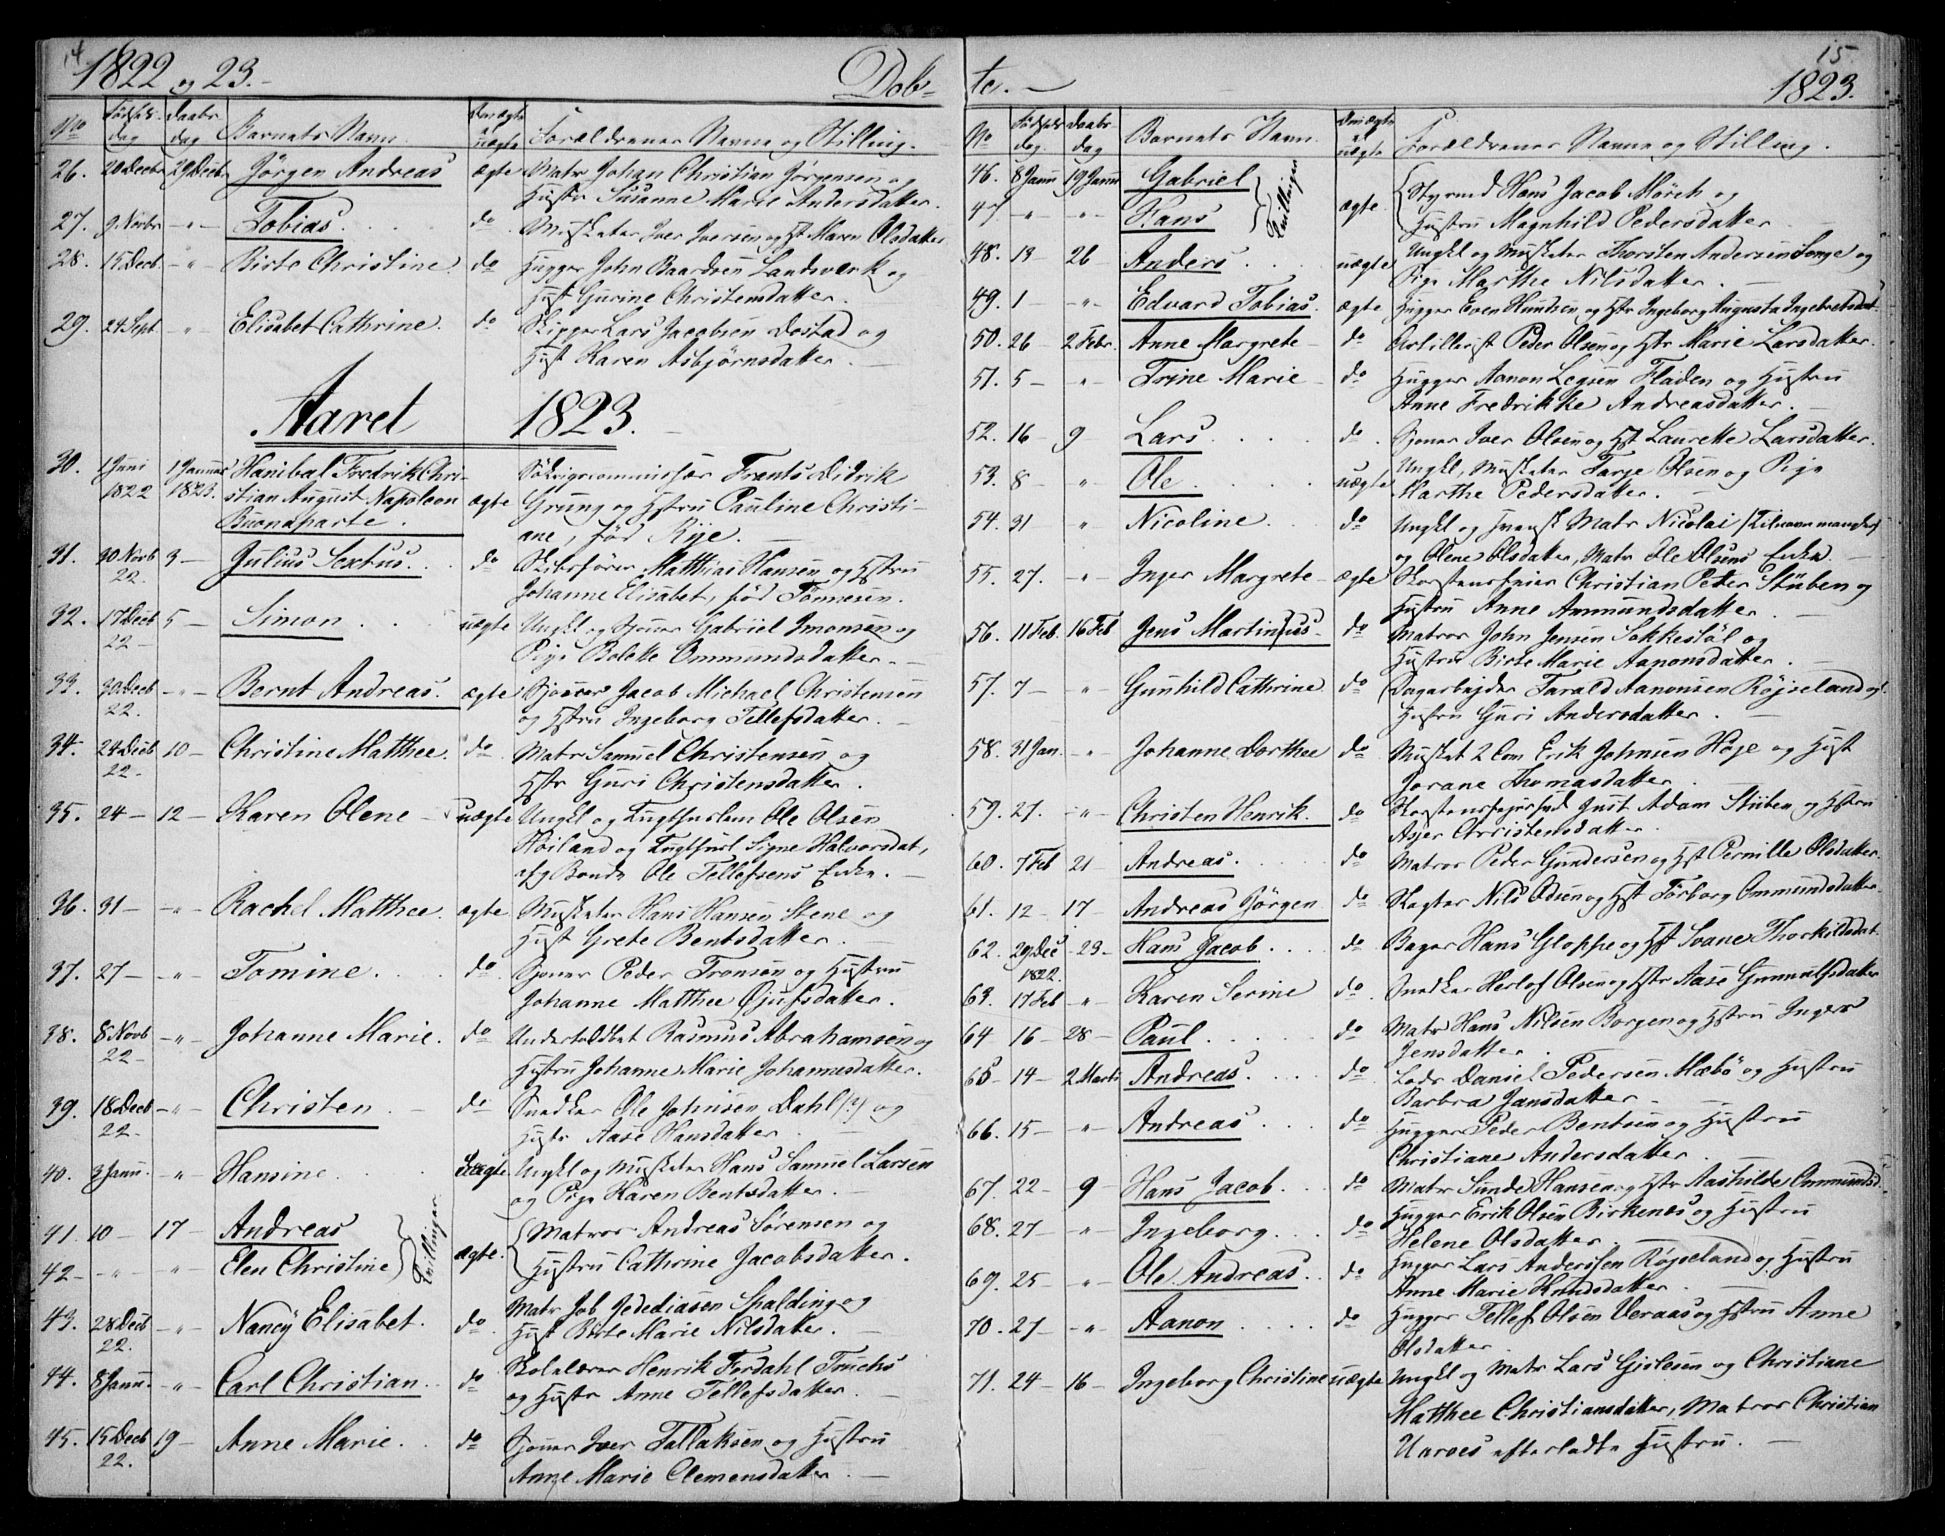 14
1822 og 23.-
Dob-
No
Fødsels-
dag
Daabs-
dag
Barnets Navn.
Om ægte
el
uægte
Forældrenes Navne og Stilling.
26. 20 Decbr 29 Decb. Jörgen Andreas ægte Matr Johan Christian Jörgensen og
Hustr Susanne Marie Andersdatter.
27. 9 Novbr -"- Tobias. do Musketer Iver Iversen og Hst Maren Olsdatter
28. 15 Decb. -"- Birte Christine. do Hugger John Baardsen Landsværk og
Hust Gurine Christensdatter.
29. 24 Sept. -"- Elisabet Cathrine. do Skipper Lars Jacobsen Dostad og
Hust Karen Asbjörnsdatter.
Aaret 1823.
30. 1 Juni 1 Januar Hanibal Fredrik Chri-
1822 1823. stian August Napoleon ægte
Buonaparte.
Krigscommissær Frants Didrik
Grung og Hstru Pauline Christi-
ane, föd Rye.
31. 30 Novb 3 - Julius Sextus. do Skibsförer Matthias Hansen og Hstru
22. Johanne Elisabet, föd Tönnesen.
32. 17 Decb 5 - Simon uægte Ungkl og Sjouer Gabriel Imonsen og
22 - Pige Bolette Ommundsdatter.
33. 30 Decb -"- Bernt Andreas. ægte Sjouer Jacob Michael Christensen
22. og Hstru Ingeborg Tellefsdatter.
34. 24 Decb 10 - Christine Matthee. do Matr Samuel Christensen og
22 - Hstr Guri Christensdatter.
35. 24 - 12 - Karen Olene - uægte Ungkl og Tugthuslem Ole Olsen
Höiland og Tugthusl Signe Halvorsdat,
afg Bonde Ole Tellefsens Enke.
36. 31 - -"- Rachel Matthee. ægte Musketer Hans Hansen Stene og
Hust Grete Bentsdatter.
37. 27 - -"- Tomine. do Sjouer Peder Tronsen og Hustru
Johanne Matthee Gjufsdatter.
38. 8 Novb -"- Johanne Marie. do Undertoldbet Rasmus Abrahamsen og
22 - Hustru Johanne Marie Johannesdatter.
39. 18 Decb -"- Christen do Snedker Ole Johnsen Dahl (?) og
22. Hustr Aase Hansdatter.
40. 3 Janu. -"- Hansine uægte Ungkl og Musketer Hans Samuel Larsen
og Pige Karen Bentsdatter.
41. 10 - 17 - Andreas
42 - -"- " Elen Christine
Tvillinger
ægte.
Matros Andreas Sörensen og
Hustru Cathrine Jacobsdatter.
43. 28 Decb -"- Nancÿ Elisabet. do Matr Job Jedediasen Spalding og
22. Hust Birte Marie Nilsdatter.
44. 8 Janu. -"- Carl Christian. do Skolelærer Henrik Fordahl Fuchs
og Hustr Anne Tellefsdatter.
45. 15 Decb 19 - Anne Marie. do Sjouer Iver Tallaksen og Hustru
22. Anne Marie Clemensdatter.
15
te. -
1823.
No
Fødsels
dag.
Daabs-
dag
Barnets Navn
Om ægte
el
uægte
Forældrenes Navne og Stilling.
46. 8 Janu 19 Janu Gabriel
47 -"- -"- Hans
Tvillinger
ægte
Styrmd Hans Jacob Mörch og
Hustru Magnhild Pedersdatter
48. 13 26 Anders uægte Ungkl og Musketer Thorsten Andersen Songe og
Pige Marthe Nilsdatter.
49. 1 - -"- Edvard Tobias. ægte Hugger Even Knudsen og Hstr Ingeborg Augusta Ingebretsdat.
50. 26 - 2 Febr. Anne Margrete - do Artillerist Peder Olsen og Hstr Marie Larsdatter.
51. 5 - " Trine Marie - do Hugger Aanon Legsen Fladen og Hustru
Anne Fredrikke Andreasdatter.
52. 16 - 9 Lars do. Sjouer Iver Olsen og Hst Laurette Larsdatter.
53. 8 - " Ole uægte Ungkl, Musketer Tarje Olsen og Pige
Marthe Pedersdatter.
54. 31 " Nicoline. do Ungkl og fransk Matr Nicolai (Tilnavn mangler)
og Olene Olsdatter, Matr Ole Olsens Enke.
55. 27. " Inger Margrete - ægte Skorstensfeier Christian Peter Stüben og
Hustru Anne Ammundsdatter.
56. 11 Feb. 16 Feb Jens Martinius - do Matros John Jensen Sökkestöl og
Hustru Birte Marie Aanonsdatter.
57. 7 - " Gunhild Cathrine do Dagarbejder Tarald Aanonsen Röjseland og
Hustru Guri Andersdatter.
58. 31 Jan. -"- Johanne Dorthee do Musket 2 Com Erik Johnsen Höje og Hust
Jorane Thomasdatter.
59. 27. -"- Christen Henrik. do Skorstensfejersvd Just Adam Stüben og Hstru
Asjer Christensdatter.
60. 7 Feb 21 Andreas. do Matros Peder Gundersen og Hst Pernille Olsdatter.
61. 12 - 17 - Andreas Jörgen do Slagter Nils Odsen og Hst Törborg Ommundsdatter.
62. 29 Dec 23 - Hans Jacob. do Bager Hans Gloppe og Hst Svane Thorkildsdat.
1822.
63. 17 Feb " Karen Serine do Snedker Herlof Olsen og Hstr Aase Gunnulfsdatter
64 16 - 28 - Paul do Matr Hans Nilsen Borgen og Hstru Inger
Jensdatter.
65 - 14 - 2 Marts Andreas. do Lods Daniel Pedersen Mæbö og Hustru
Barbra Jansdatter -
66. 15 - " Andreas do Hugger Peder Bentsen og Hustru
Christiane Andersdatter.
67. 22 - 9 - Hans Jacob. do Matr Sunde Hansen og Hstr Aashilde Ommundsd.
68. 27 - " Ingeborg do Hugger Erik Olsen Birkenæs og Hustru
Helene Olsdatter.
69. 25 " Ole Andreas. do Hugger Lars Anderssen Röjseland og Hustru
Anne Marie Knudsdatter.
70. 27 - -"- Aanon do Hugger Tellef Olsen Veraas og Hstru Anne
Olsdatter
71. 24 - 16 - Ingeborg Christine uægte Ungkl og Matr Lars Gjolesen og Christiane
Matthee Christiansdatter, Matros Christian
Uaroes efterladte Hustru.